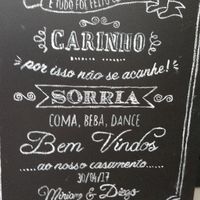 E TUDO FOI FEITO
CARINHO
por isso não se acanhe!
SORRIA
COMA, BEBA, DANCE
Bem Vindos
...ao nosso casamento...
30/04/17
Miriam & Diego